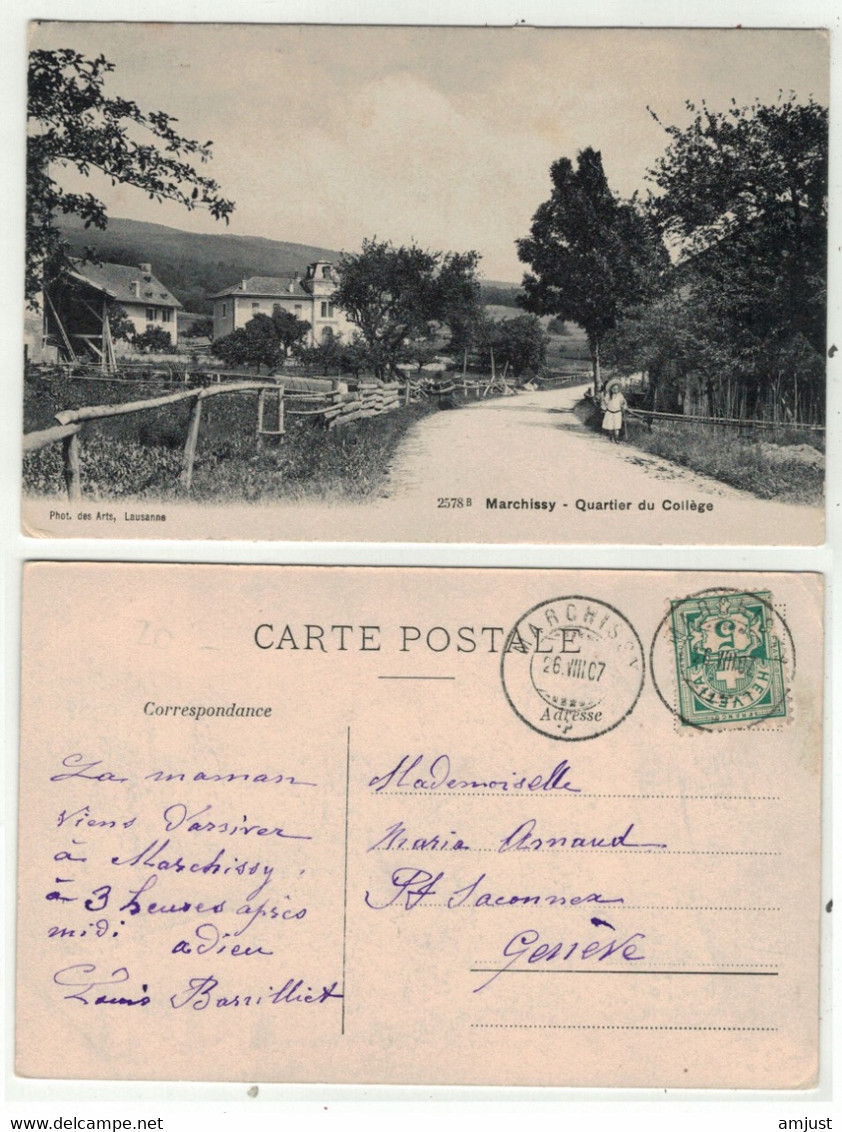 2578 B Marchissy - Quartier du Collège
Phot. des Arts, Lausanne
CARTE POSTALE
MARCHISSY
26.VIII.07
5
HELVETIA
Correspondance
Adresse
La maman
viens d'arriver
à Marchissy,
à 3 heures après
midi adieu
Louis Barrilliet
Mademoiselle
Maria Arnaud
Pt Saconnex
Genève
delcampe.net
amjust